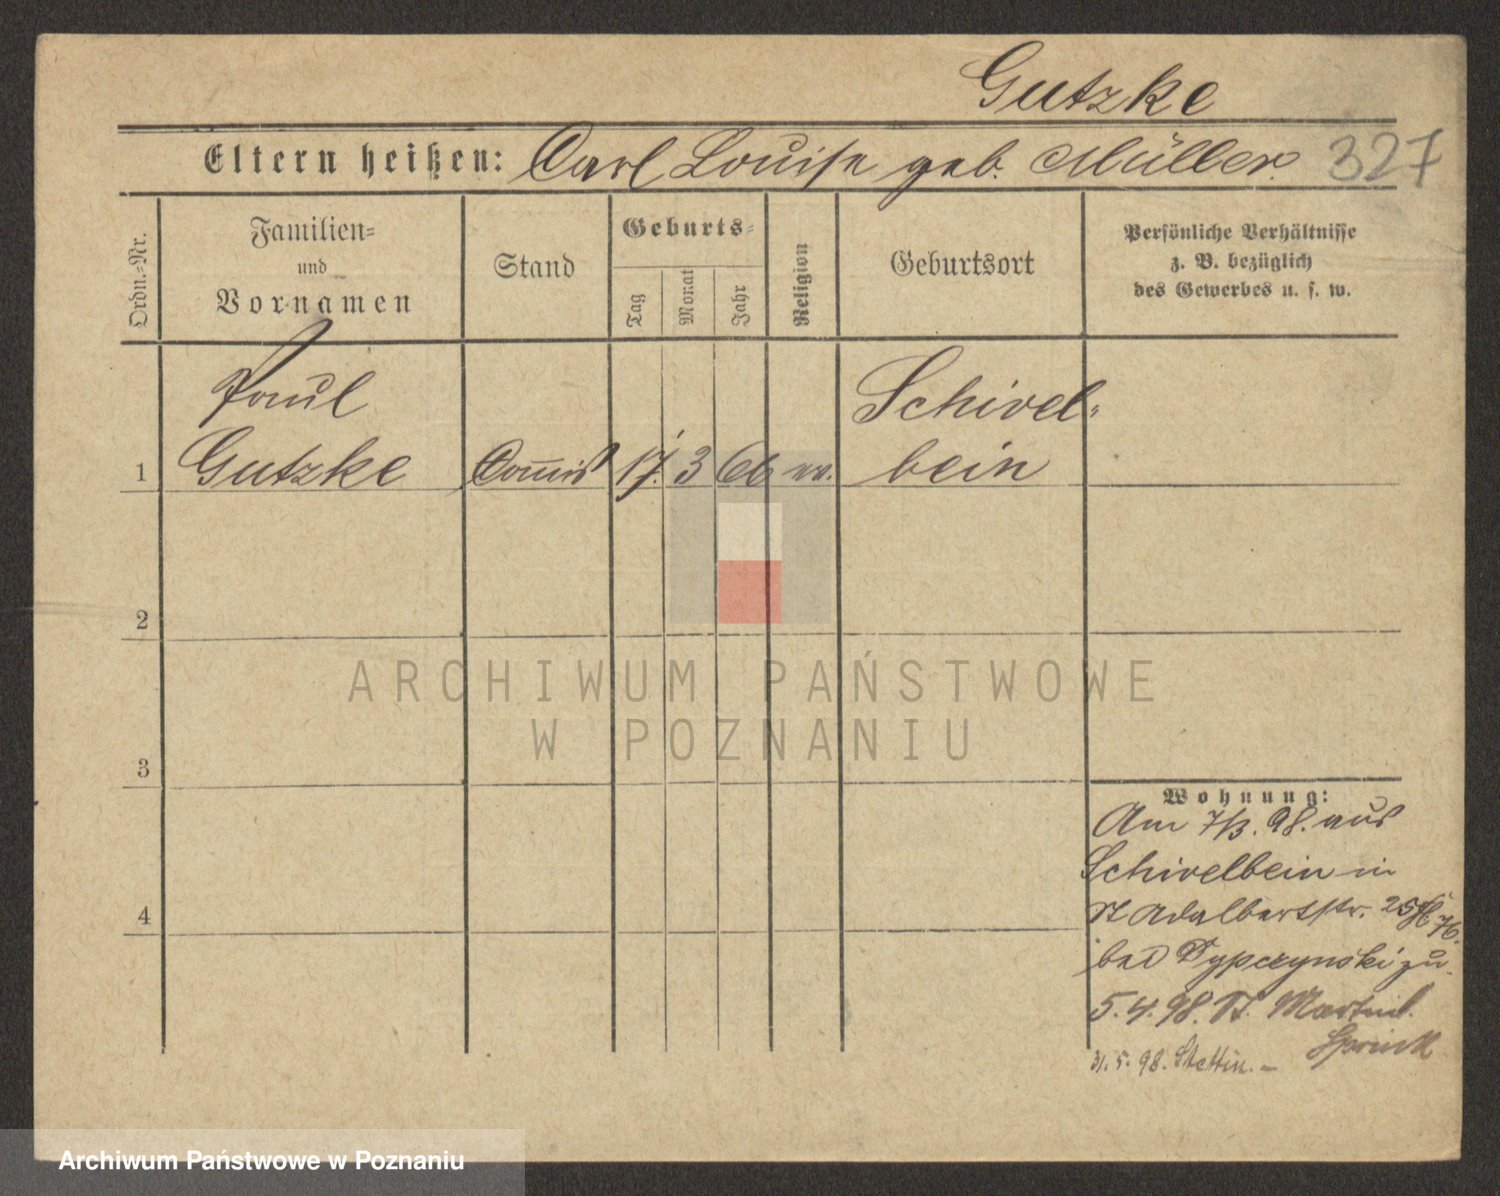 Gutzke
Eltern heißen: Carl Louise geb. Müller. 327
Ordn.=Nr.
Familien=
und
Vornamen
Stand
Geburts=
Tag
Monat
Jahr
Religion
Geburtsort
Persönliche Verhältnisse
z. B. bezüglich
des Gewerbes u. s. w.
Paul
Gutzke
Schivel=
bein
1 Com̅is 17. 3 66 ev.
2
3
4
ARCHIWUM PAŃSTWOWE
W POZNANIU
Wohnung:
Am 7/3. 98. aus
Schivelbein in
St Adalbertstr. 25
bei zu.
5. 4. 98. St. Martin
31. 5. 98. Stettin. –
Archiwum Państwowe w Poznaniu